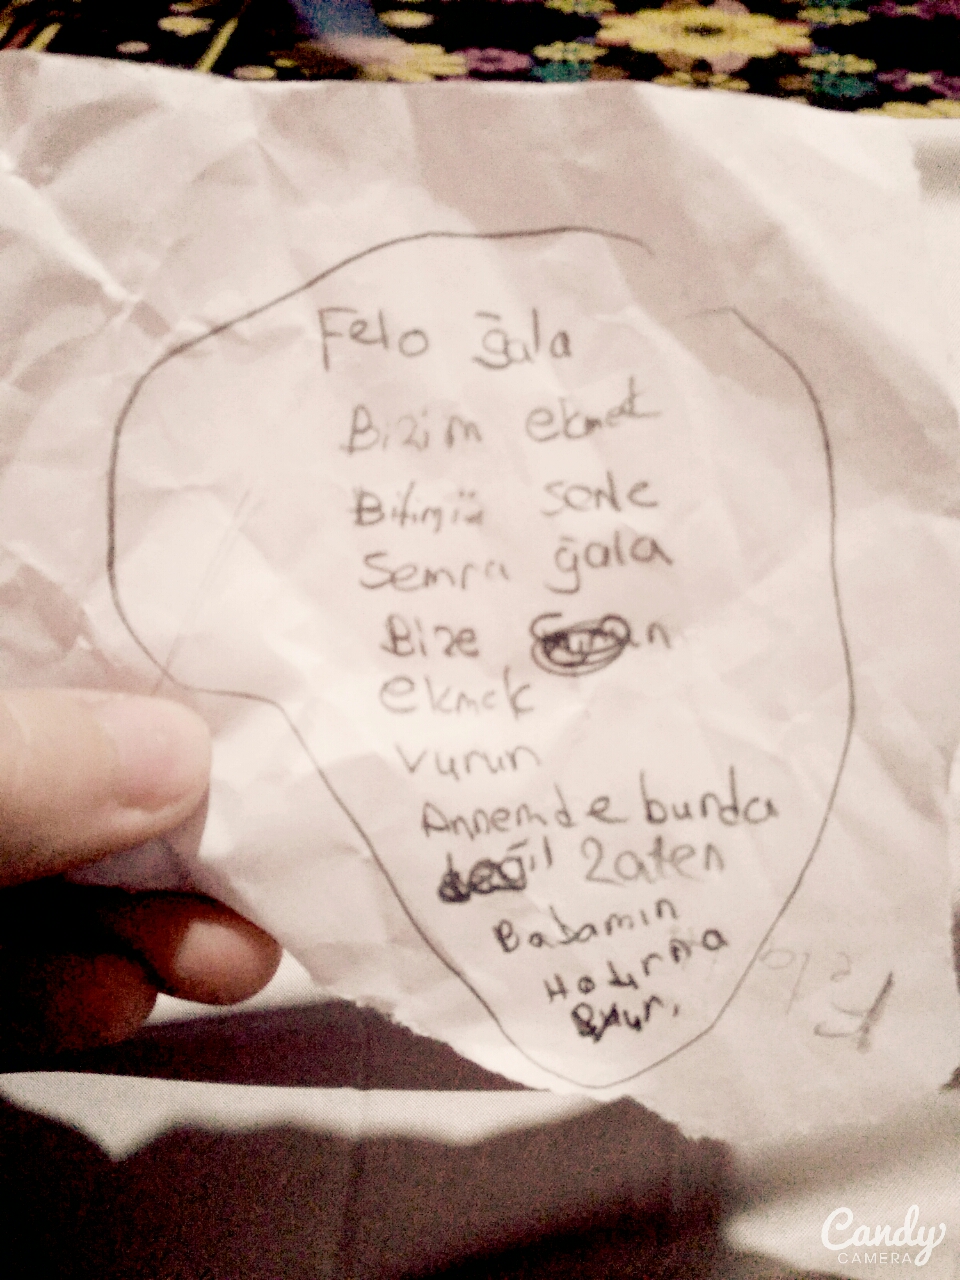 Felo ğala
Bizim ekmek
Bitimiü senle
Semra ğala
Bize
ekmek
vurun
Annemde burda
değil zaten
Babamın
Hatırına
Felo
Candy
CAMERA